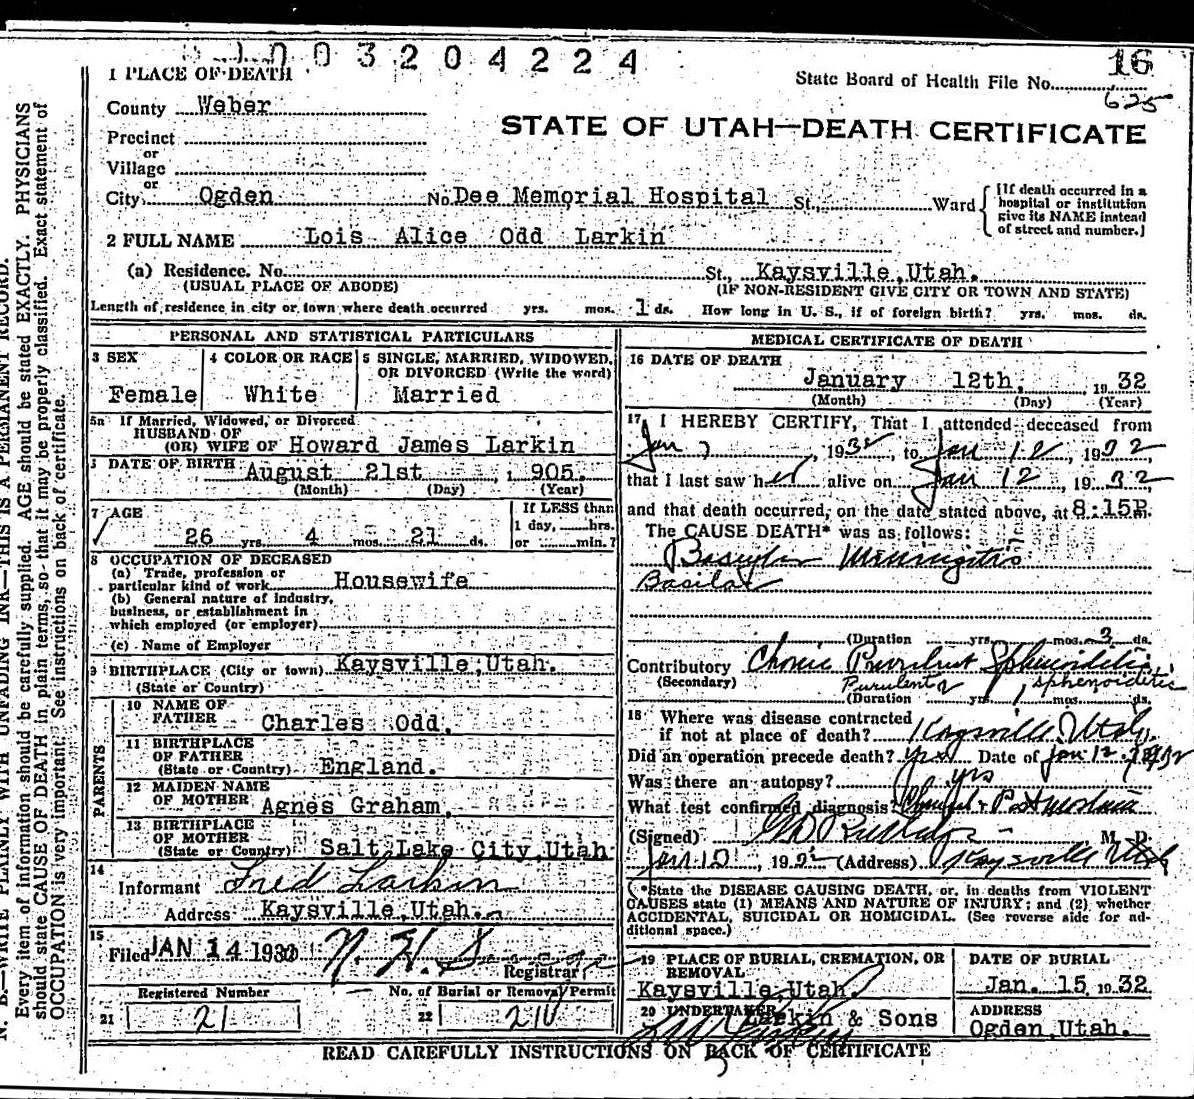 003204224
16
1 PLACE OF DEATH
State Board of Health File No.
625
County Weber
STATE OF UTAH—DEATH CERTIFICATE
Precinct
or
Village
or
City Ogden No. Dee Memorial Hospital St., Ward
[If death occurred in a hospital or institution give its NAME instead of street and number.]
2 FULL NAME Lois Alice Odd Larkin
(a) Residence. No. St., Kaysville, Utah.
(USUAL PLACE OF ABODE) (IF NON-RESIDENT GIVE CITY OR TOWN AND STATE)
Length of residence in city or town where death occurred yrs. mos. 1 ds. How long in U. S., if of foreign birth? yrs. mos. ds.
PERSONAL AND STATISTICAL PARTICULARS
3 SEX
Female
4 COLOR OR RACE
White
5 SINGLE, MARRIED, WIDOWED, OR DIVORCED (Write the word)
Married
5a If Married, Widowed, or Divorced
HUSBAND OF
(OR) WIFE OF Howard James Larkin
DATE OF BIRTH August 21st, 1905.
(Month) (Day) (Year)
7 AGE
26 yrs. 4 mos. 21 ds.
If LESS than
1 day, hrs.
or min.?
8 OCCUPATION OF DECEASED
(a) Trade, profession or
particular kind of work Housewife
(b) General nature of industry,
business, or establishment in
which employed (or employer)
(c) Name of Employer
9 BIRTHPLACE (City or town) Kaysville, Utah.
(State or Country)
PARENTS
10 NAME OF
FATHER Charles Odd.
11 BIRTHPLACE
OF FATHER
(State or Country) England.
12 MAIDEN NAME
OF MOTHER Agnes Graham
13 BIRTHPLACE
OF MOTHER
(State or Country) Salt Lake City, Utah
14
Informant Fred Larkin
Address Kaysville, Utah.
15
Filed JAN 14 193 N. H.
Registrar
Registered Number
21 21
No. of Burial or Removal Permit
22 210
MEDICAL CERTIFICATE OF DEATH
16 DATE OF DEATH
January 12th, 1932
(Month) (Day) (Year)
17 I HEREBY CERTIFY, That I attended deceased from
Jan 7, 1932, to Jan 12, 1932
that I last saw her alive on Jan 12, 1932
and that death occurred, on the date stated above, at 8:15P.m.
The CAUSE DEATH* was as follows:
Meningitis
Basilar
(Duration yrs. mos. 3 ds.
Contributory Chronic Purulent Sphenoiditis
(Secondary) Purulent sphenoiditis
(Duration yrs. 1 mos. ds.
18 Where was disease contracted
if not at place of death? Kaysville Utah.
Did an operation precede death? yes Date of Jan 12 1932
Was there an autopsy? yes
What test confirmed diagnosis?
(Signed) M. D.
Jan 10, 1932 (Address) Kaysville Utah
(*State the DISEASE CAUSING DEATH, or, in deaths from VIOLENT
CAUSES state (1) MEANS AND NATURE OF INJURY; and (2) whether
ACCIDENTAL, SUICIDAL OR HOMICIDAL. (See reverse side for ad-
ditional space.)
19 PLACE OF BURIAL, CREMATION, OR
REMOVAL
Kaysville, Utah.
DATE OF BURIAL
Jan. 15, 1932
20 UNDERTAKER
Larkin & Sons
ADDRESS
Ogden, Utah.
READ CAREFULLY INSTRUCTIONS ON BACK OF CERTIFICATE
N. B.—WRITE PLAINLY WITH UNFADING INK—THIS IS A PERMANENT RECORD.
Every item of information should be carefully supplied. AGE should be stated EXACTLY. PHYSICIANS
should state CAUSE OF DEATH in plain terms, so that it may be properly classified. Exact statement of
OCCUPATION is very important. See instructions on back of certificate.